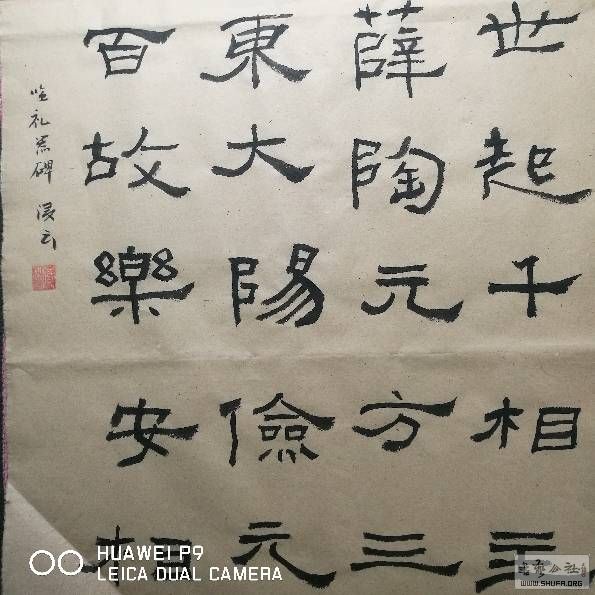 世起千相
薛陶元方三
東大陽儉元
百故樂安相
临礼器碑
HUAWEI P9
LEICA DUAL CAMERA
WWW.SHUFA.ORG